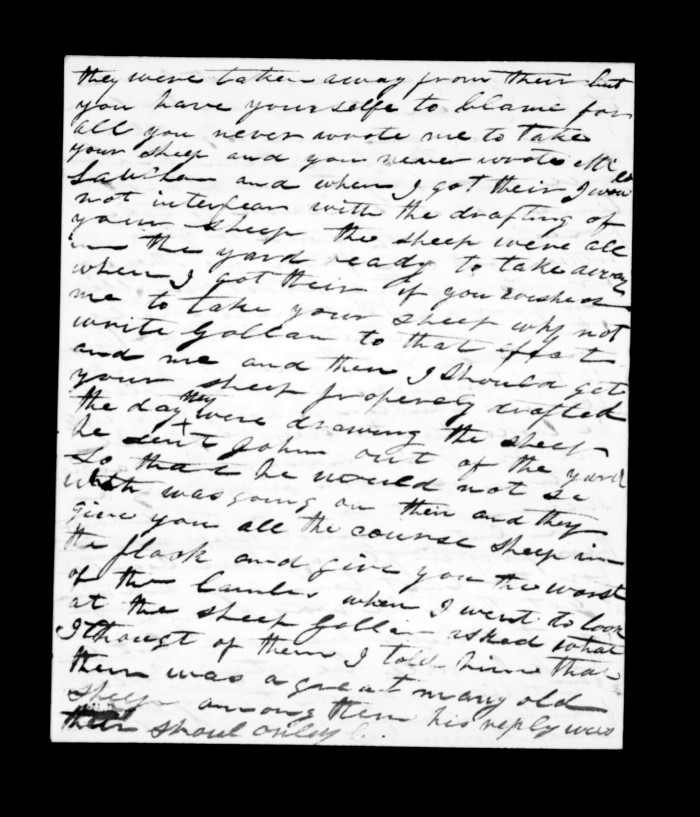 they were taken away from their but
you have yourselfe to blame for
all you never wrote me to take
your sheep and you never wrote Mc
and when I got their I would
not interfear with the drafting of
your sheep the sheep were all
in the yard ready to take away
when I got their if you wished
me to take your sheep why not
write Gollan to that effect
and me and then I should get
your sheep properely drafted
the day they were drawing the sheep
he sent John out of the yard
so that he would not se
what was going on their and they
give you all the course sheep in
the flock and give you the worst
of the lambs when I went to look
at the sheep Gollan asked what
I thought of them I told him that
their was a great many old
sheep among them his reply was
their shoul only